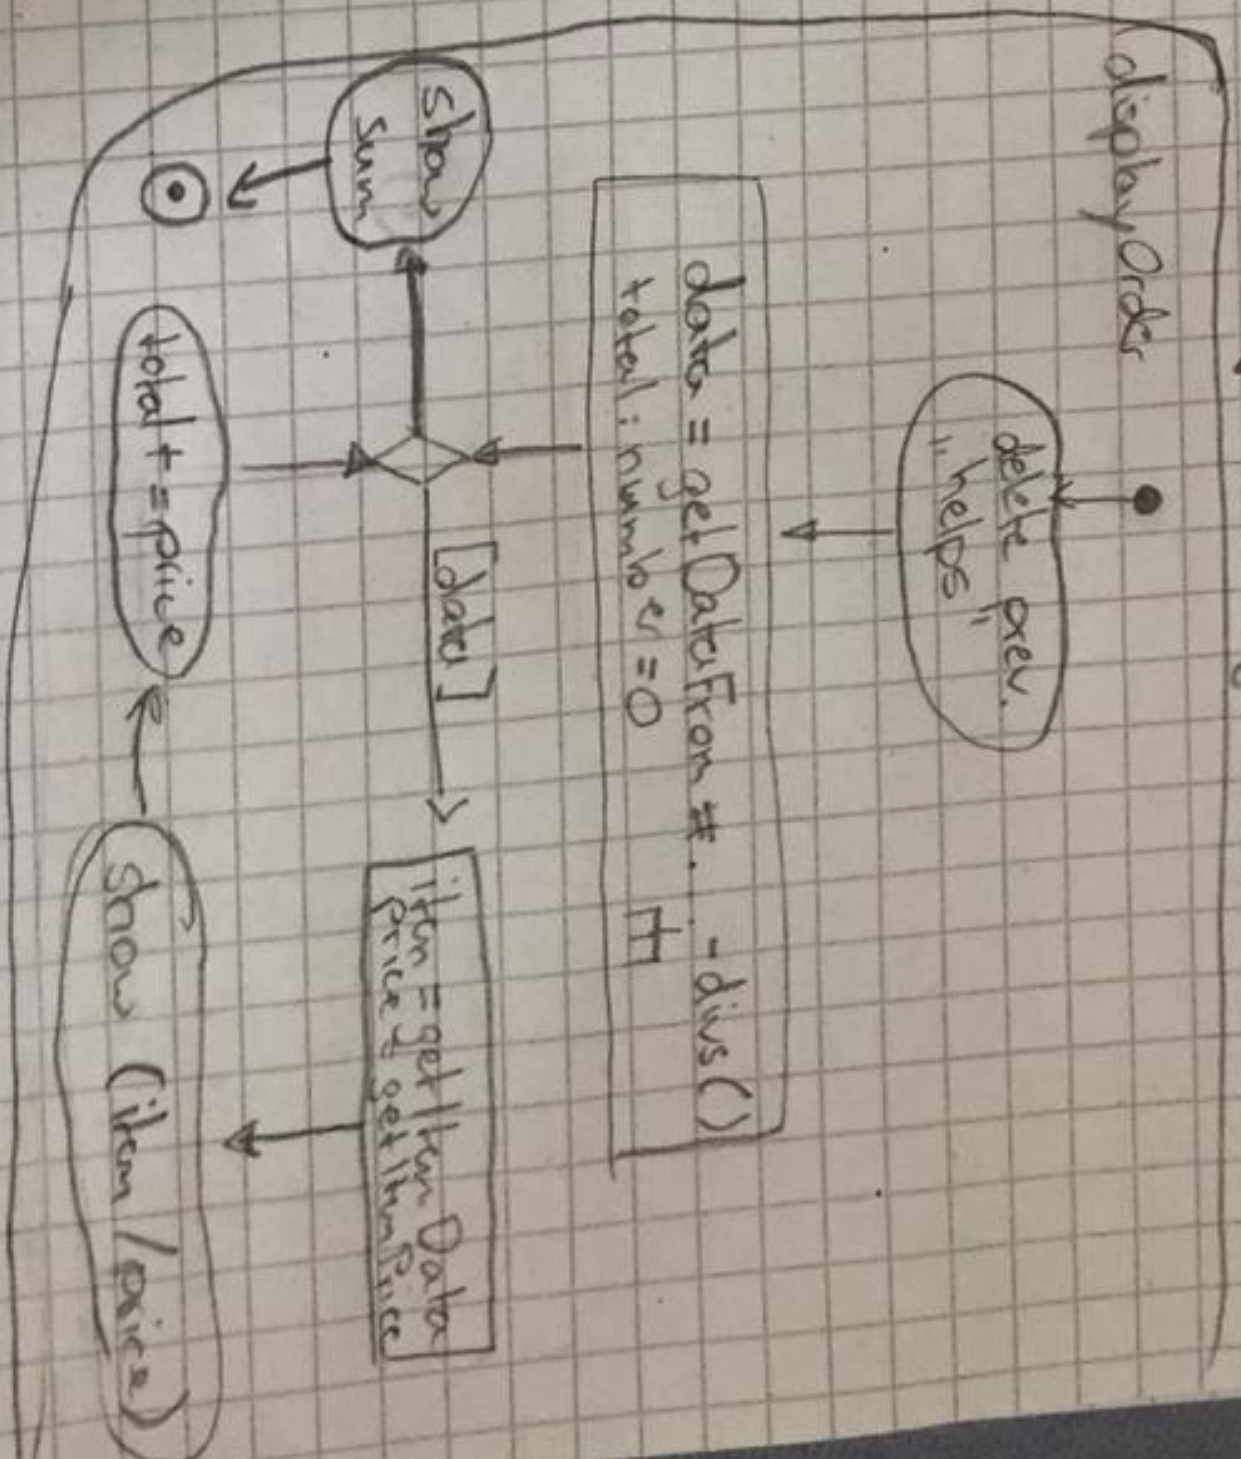 displayOrder
delete prev.
„helps"
data = getDataFrom #... -divs()
total : number = 0
[data]
item = getItemData
price = getItemPrice
show (item/price)
total += price
show
sum